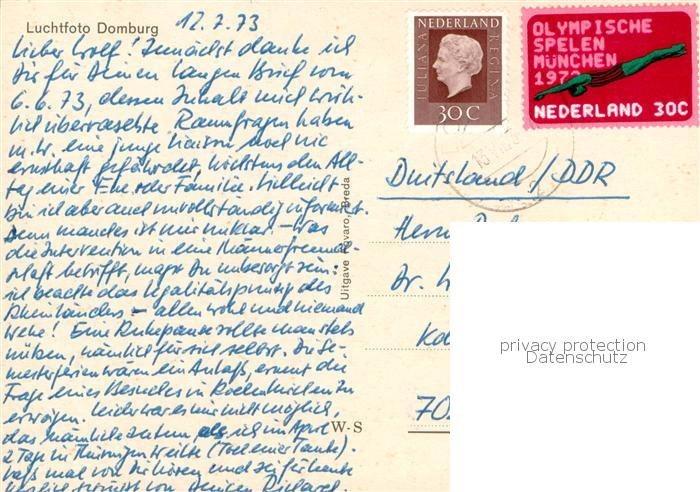 Luchtfoto Domburg
12.7.73
Lieber Wolf! Zunächst danke ich
Dir für Deinen langen Brief vom
6.6.73, dessen Inhalt mich wirk-
lich überraschte. Raumfragen haben
m.W. eine junge Liaison noch nie
ernsthaft gefährdet, höchstens den All-
tag einer Ehe oder Familie. Vielleicht
bin ich aber auch unvollständig informiert.
Denn manches ist mir unklar – was
die Intervention in eine Männerfreund-
schaft betrifft, magst Du unbesorgt sein:
ich beachte das Legalitätsprinzip des
Rheinländers – allen wohl und niemand
wehe! Eine Ruhepause sollte man stets
nützen, nämlich für sich selbst. Die Se-
mesterferien wären ein Anlaß, erneut die
Frage eines Besuches in Rodenkirchen zu
erwägen. Leider war es mir nicht möglich,
das Nämliche zu tun, als ich im April
2 Tage in Thüringen weilte (Tod einer Tante).
Laß mal von Dir hören und sei für heute
herzlich gegrüßt von Deinem Richard
Uitgave Havaro, Breda
W-S
JULIANA
NEDERLAND
REGINA
30 C
OLYMPISCHE
SPELEN
MÜNCHEN
1972
NEDERLAND 30C
Duitsland/DDR
Herrn
Dr. W
70
privacy protection
Datenschutz